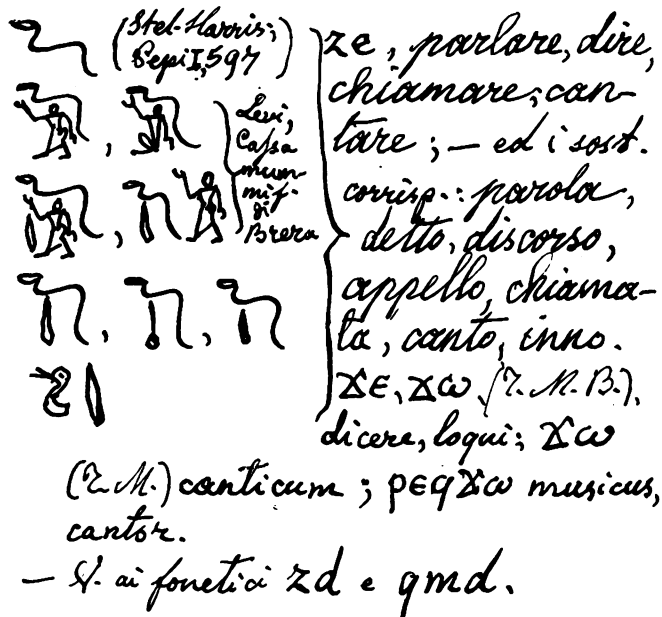 (Stel. Harris;
Pepi I, 597)
Levi,
Cassa
mum-
mif.
di
Brera
ze, parlare, dire,
chiamare; can-
tare; — ed i sost.
corrisp.: parola,
detto, discorso,
appello, chiama-
ta, canto, inno.
ϪⲈ, Ϫⲱ (T. M. B.),
dicere, loqui; Ϫⲱ
(T. M.) canticum; ⲣⲉϥϪⲱ musicus,
cantor.
— V. ai fonetici zd e qmd.